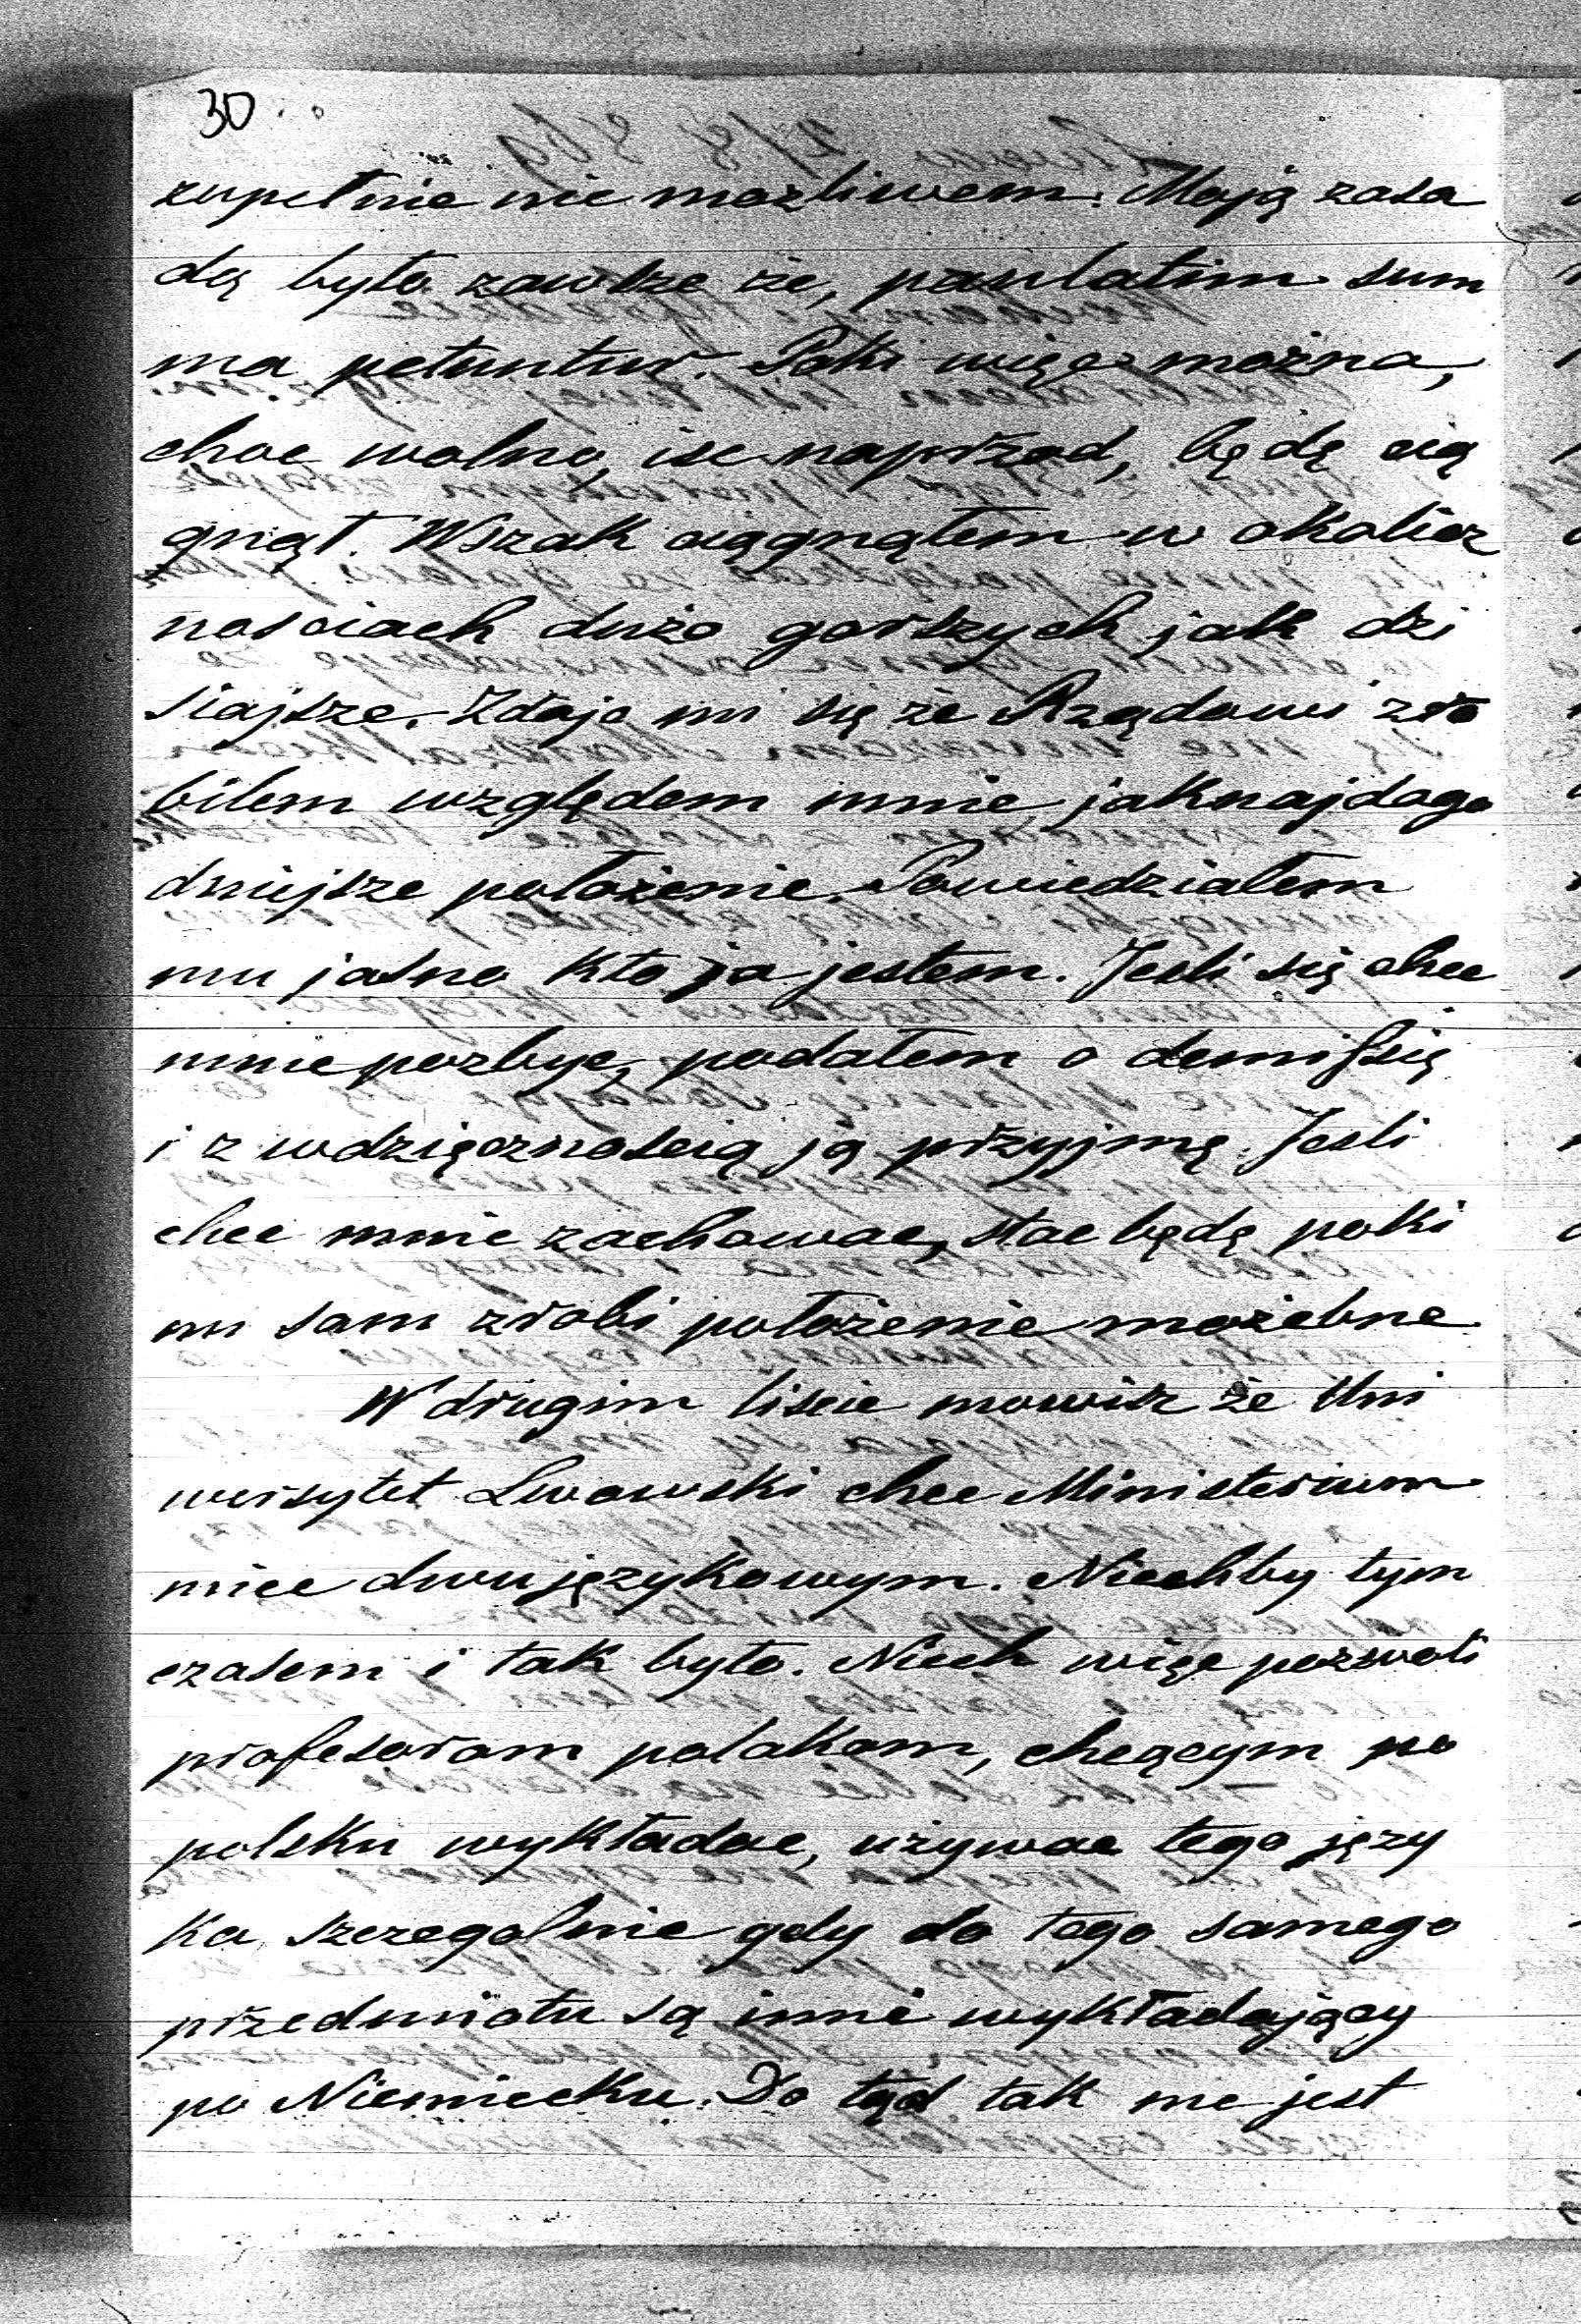 30
zupełnie nie mozliwem. Moją zasa
dą było zawsze że, paulatim sum
ma petuntur. Poki więc można,
choc wolno, isc naprzod, będę cią
gnął. Wszak ciągnąłem w okolicz
nosciach dużo gorszych jak dzi
siajsze. Zdaje mi się że Rządowi zro
bilem względem mnie jaknajdogo
dniejsze położenie. Powiedziałem
mu jasno kto ja jestem. Jesli się chce
mnie pozbyc, podałem o demissię
i z wdzięcznoscią ją przyjmę. Jesli
chce mnie zachowac, stac będę poki
mi sam zrobi położenie możebne
W drugim liscie mowisz że Uni
wersytet Lwowski chce Ministerium
miec dwujęzykowym. Niechby tym
czasem i tak było. Niech więc pozwoli
profesorom polakom, chcącym po
polsku wykładac, używac tego języ
ka, szczegolnie gdy do tego samego
przedmiotu są inni wykładający
po Niemiecku. Do tąd tak nie jest